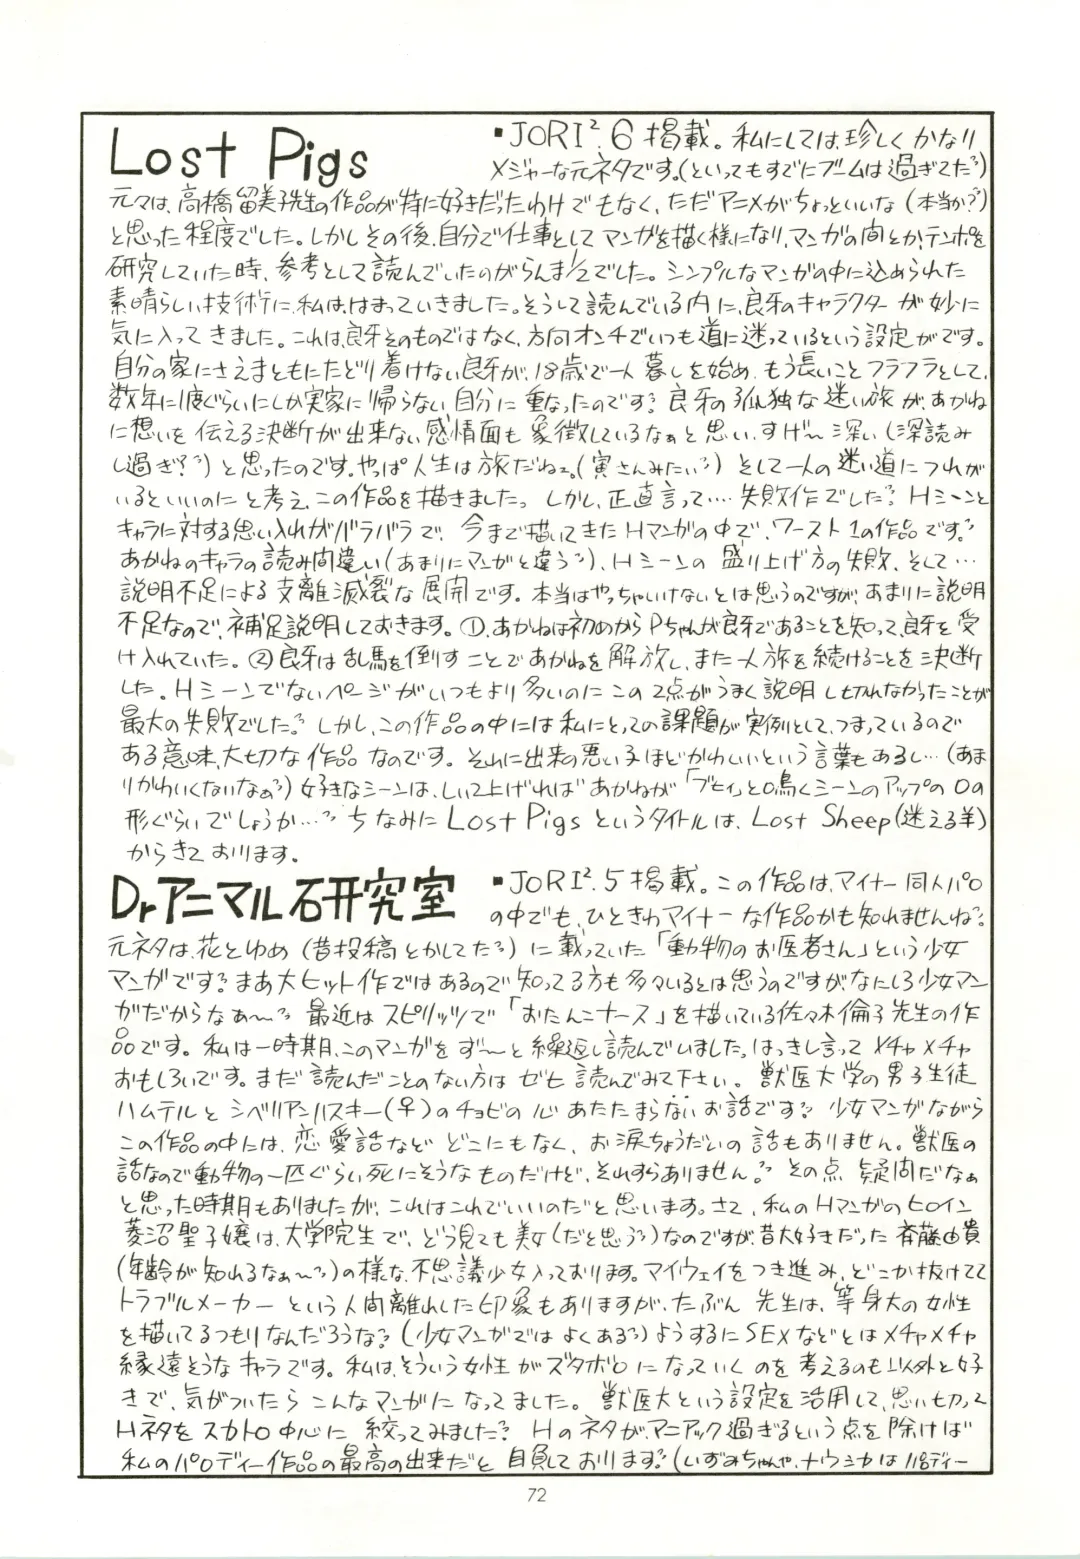 Lost Pigs
▪JORI².6掲載。私にしては珍しくかなり
メジャーな元ネタです。(といってもすでにブームは過ぎてた?)
元々は、高橋留美子先生の作品が特に好きだったわけでもなく、ただアニメがちょっといいな(本当か?)
と思った程度でした。しかしその後、自分で仕事としてマンガを描く様になり、マンガの間とか、テンポを
研究していた時、参考として読んでいたのがらんま1/2でした。シンプルなマンガの中に込められた
素晴らしい技術に、私は、はまっていきました。そうして読んでいる内に、良牙のキャラクターが妙に
気に入ってきました。これは、良牙そのものではなく、方向オンチでいつも道に迷っているという設定がです。
自分の家にさえまともにたどり着けない良牙が、18歳で一人暮しを始め、もう長いことフラフラとして、
数年に1度ぐらいにしか実家に帰らない自分に重なったのです? 良牙の孤独な迷い旅が、あかね
に想いを伝える決断が出来ない感情面も象徴しているなぁと思い、すげ〜深い(深読み
し過ぎ??)と思ったのです。やっぱ人生は旅だねェ。(寅さんみたい?)そして一人の迷い道につれが
いるといいのにと考え、この作品を描きました。しかし、正直言って‥‥失敗作でした? Hシーンと
キャラに対する思い入れがバラバラで、今まで描いてきたHマンガの中で、ワースト1の作品です?
あかねのキャラの読み間違い(あまりにマンガと違う?)、Hシーンの盛り上げ方の失敗、そして…
説明不足による支離滅裂な展開です。本当はやっちゃいけないとは思うのですが、あまりに説明
不足なので、補足説明しておきます。①、あかねは初めからPちゃんが良牙であることを知って、良牙を受
け入れていた。②良牙は乱馬を倒すことであかねを解放し、また一人旅を続けることを決断
した。Hシーンでないページがいつもより多いのにこの2点がうまく説明し切れなかったことが
最大の失敗でした? しかし、この作品の中には私にとっての課題が実例として、つまっているので
ある意味、大切な作品なのです。それに出来の悪い子ほどかわいいという言葉もあるし…(あま
りかわいくないなぁ?)好きなシーンは、しいて上げればあかねが「ブヒィ」と鳴くシーンのアップのロの
形ぐらいでしょうか…? ちなみにLost Pigsというタイトルは、Lost Sheep(迷える羊)
からきております。
Drアニマル研究室
▪JORI².5掲載。この作品は、マイナー同人パロ
の中でも、ひときわマイナーな作品かも知れませんね?
元ネタは、花とゆめ(昔投稿とかしてた?)に載っていた「動物のお医者さん」という少女
マンガです? まあ大ヒット作ではあるので知ってる方も多々いるとは思うのですが、なにしろ少女マン
ガだからなぁ〜? 最近はスピリッツで「おたんこナース」を描いている佐々木倫子先生の作
品です。私は一時期、このマンガをず〜と繰返し読んでいました。はっきし言ってメチャメチャ
おもしろいです。まだ読んだことのない方はゼヒ読んでみて下さい。獣医大学の男子生徒
ハムテルとシベリアンハスキー(♀)のチョビの心あたたまらないお話です? 少女マンガながら
この作品の中には、恋愛話などどこにもなく、お涙ちょうだいの話もありません。獣医の
話なので動物の一匹ぐらい死にそうなものだけど、それすらありません? その点疑問だなぁ
と思った時期もありましたが、これはこれでいいのだと思います。さて、私のHマンガのヒロイン
菱沼聖子嬢は、大学院生で、どう見ても美女(だと思う?)なのですが、昔大好きだった斉藤由貴
(年齢が知れるなぁ〜?)の様な、不思議少女入っております。マイウェイをつき進み、どこか抜けてて
トラブルメーカーという人間離れした印象もありますが、たぶん先生は、等身大の女性
を描いてるつもりなんだろうな?(少女マンガではよくある?)ようするにSEXなどとはメチャメチャ
縁遠そうなキャラです。私は、そういう女性がズタボロになっていくのを考えるのも以外と好
きで、気がついたらこんなマンガになってました。獣医大という設定を活用して、思い切って
Hネタをスカトロ中心に絞ってみました? Hのネタが、マニアック過ぎるという点を除けば
私のパロディー作品の最高の出来だと自負しております?(いずみちゃんや、ナウシカはパロディー
72